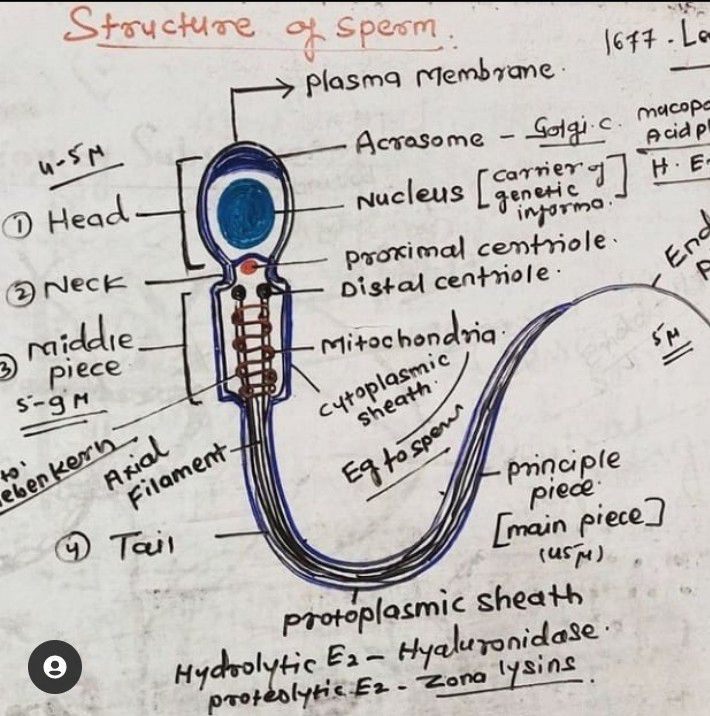 Structure of sperm.
1677 - Le
plasma Membrane.
Acrasome - Golgi.c.
macopo
Acid p
4-5 M
Nucleus [carrier of genetic informa.]
H. E
① Head
proximal centriole.
② Neck
Distal centriole.
End
P
③ middle piece
Mitochondria.
5 M
5-9 M
cytoplasmic sheath.
to:
ebenkern
Axial Filament
Eg to sperm
principle piece.
[main piece]
(45 M)
④ Tail
protoplasmic sheath
Hydrolytic Ez - Hyaluronidase.
proteolytic.Ez - Zona lysins.